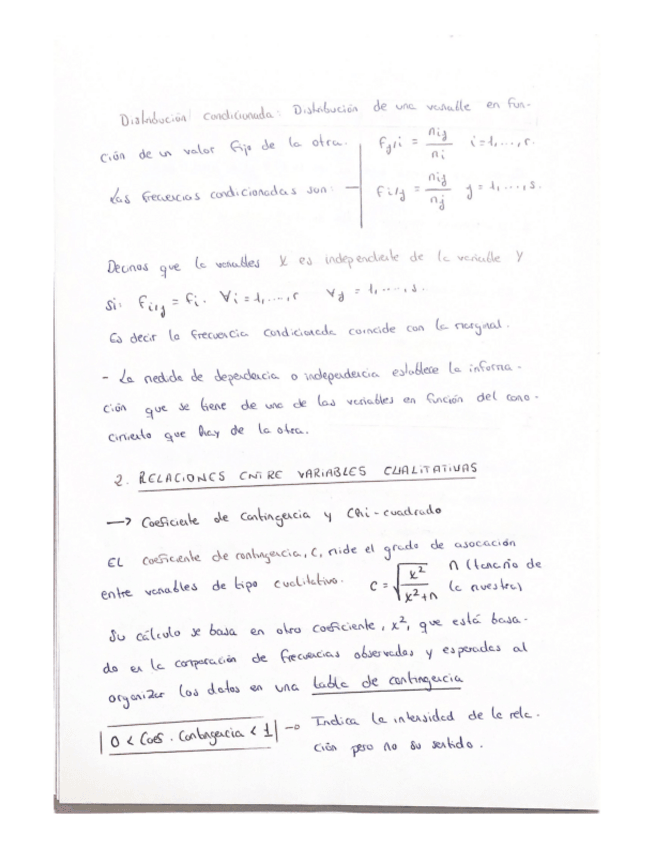 Distribución condicionada: Distribución de una variable en fun-
ción de un valor fijo de la otra.
f_{j/i} = n_{ij}/n_i i=1,...,r.
Las frecuencias condicionadas son:
f_{i/j} = n_{ij}/n_j j=1,...,s.
Decimos que la variables X es independiente de la variable Y
si: f_{i/j} = f_i. ∀i=1,...,r ∀j=1,...,s.
Es decir la frecuencia condicionada coincide con la marginal.
- La medida de dependencia o independencia establece la informa-
ción que se tiene de una de las variables en función del cono-
cimiento que hay de la otra.
2. RELACIONES ENTRE VARIABLES CUALITATIVAS
→ Coeficiente de Contingencia y Chi-cuadrado
EL coeficiente de contingencia, C, mide el grado de asocación
entre variables de tipo cualitativo. C = √(x²/(x²+n)) n (tamaño de
la muestra)
Su cálculo se basa en otro coeficiente, x², que está basa-
do en la comparación de frecuencias observadas y esperadas al
organizar los datos en una tabla de contingencia
0 < Coef. Contingencia < 1 → Indica la intensidad de la rela-
ción pero no su sentido.